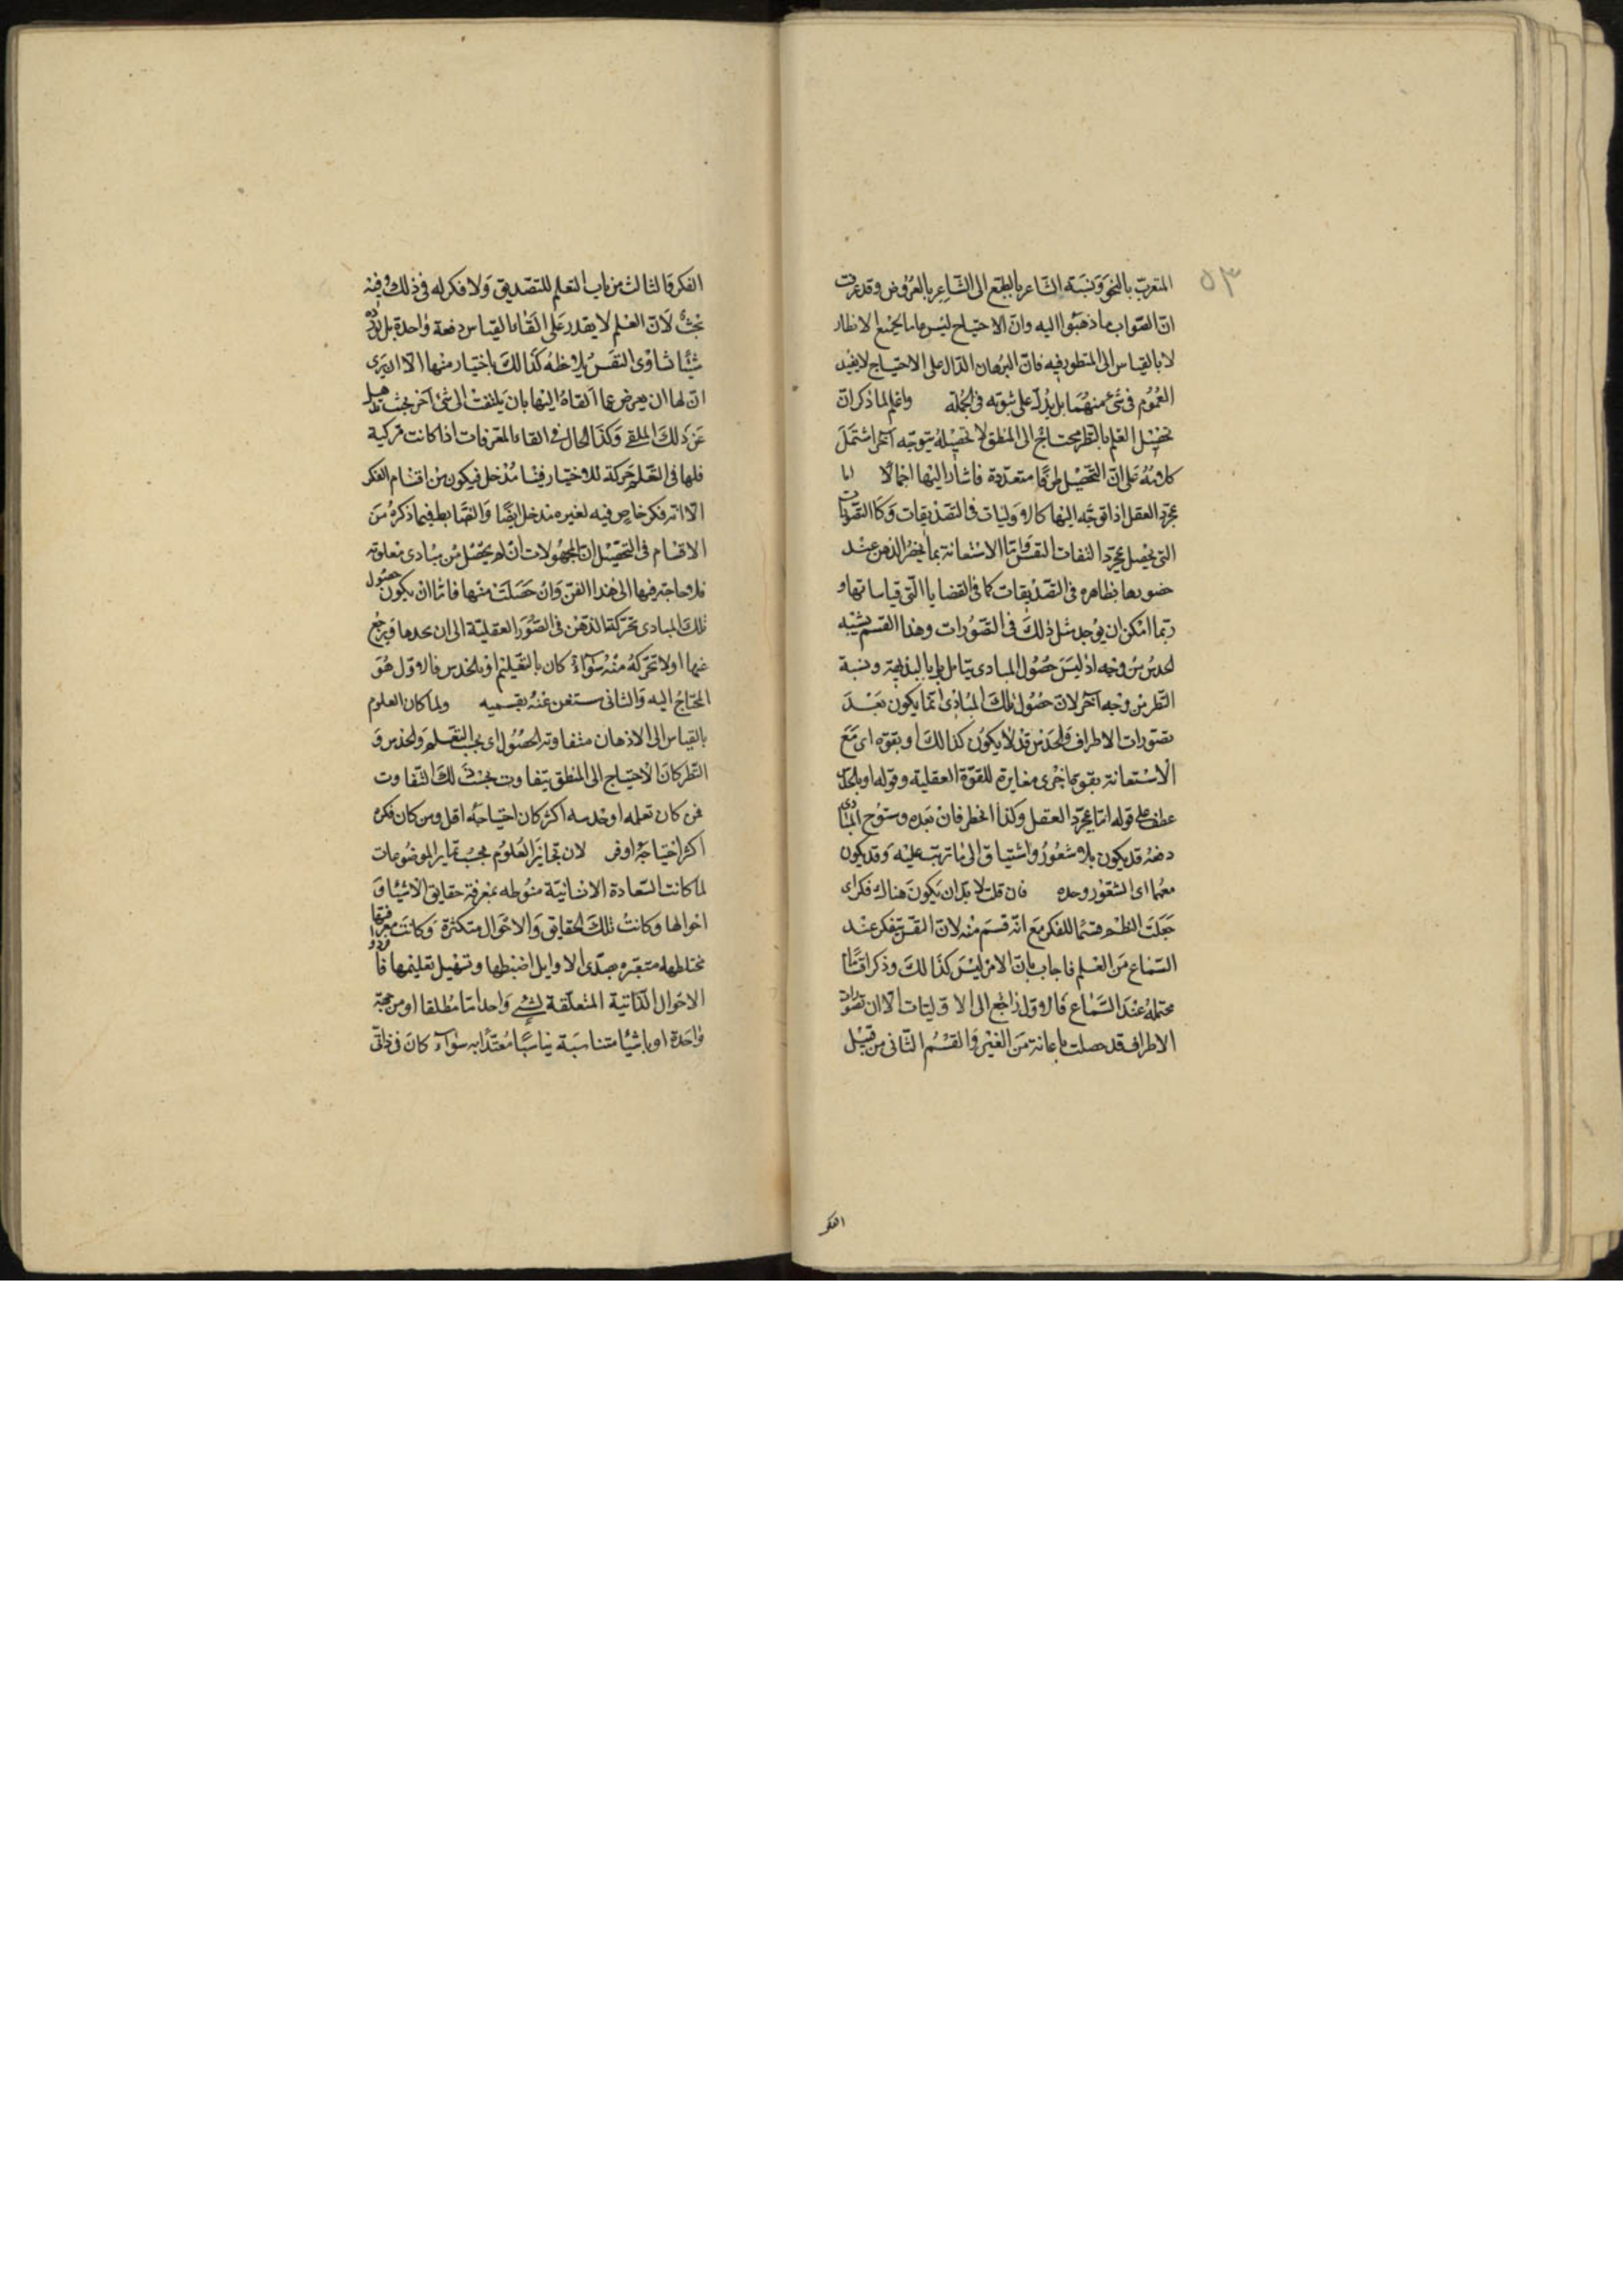 ٥٣
المتعرب بالنحو ونسبة الشاعر بالطبع الى الشاعر بالعروض وقد عرفت
ان الصواب ما ذهبوا اليه وان الاحتياج ليس عاما لجميع الانظار
لا بالقياس الى المنظور فيه فان البرهان الدال على الاحتياج لا يفيد
العموم فى شئ منهما بل يدل على ثبوته فى الجملة واعلم لما ذكر ان
تحصيل العلم بالنظر محتاج الى المنطق لا تحصيله بتوجه آخر اشتمل
كلامه على ان التحصيل طرقا متعددة فاشار اليها اجمالا اما
بمجرد العقل اذا توجه اليها كالاوليات فى التصديقات وكالتصورات
التى يحصل بمجرد التفات النفس واما الاستعانة بما يحضر الذهن عند
حضورها بظاهره فى التصديقات كما فى القضايا التى قياساتها و
ربما امكن ان يوجد مثل ذلك فى التصورات وهذا القسم يشبه
الحدس من وجه اذ ليس حصول المبادى بتامل بل بالبديهة ونسبة
النظر من وجه آخر لان حصول تلك المبادى انما يكون بعد
تصورات الاطراف والحدس قد لا يكون كذلك او بقوة اى مع
الاستعانة بقوة اخرى مغايرة للقوة العقلية وقوله او بالحدس
عطف على قوله اما بمجرد العقل وكذا النظر فان بعده وسنوح المبادى
دفعة قد يكون بلا شعور واشتياق الى ما ترتب عليه وقد يكون
معهما اى الشعور وحده فان قلت لا بد ان يكون هناك فكر اى
جعلت النظر قسما للفكر مع انه قسم منه لان النفس يتفكر عند
السماع من العلم فاجاب بان الامر ليس كذلك وذكر اقساما
محتملة عند السماع فالاول راجع الى الاوليات الا ان تصورات
الاطراف قد حصلت باعانة من الغير والقسم الثانى من قبيل
الفكر
الفكر والثالث من باب التعلم للتصديق ولا فكر له فى ذلك وفيه
بحث لان العلم لا يقدر على القاء القياس دفعة واحدة بل
شيئا شاوى النفس يلاحظه كذلك باختيار منها الا ان يرى
ان لها ان يعرض عما القاه اليها بان يلتفت الى شئ آخر بحيث
عن ذلك الملقى وكذا الحال فى القاء المعرفات اذا كانت مركبة
فلها فى التعلم حركة للاختيار فيها مدخل فيكون من اقسام الفكر
الا انه فكر خاص فيه لغيره مدخل ايضا والضابط فيما ذكره من
الاقسام فى التحصيل ان المجهولات ان لم يحصل من مبادى معلومة
فلا حاجة فيها الى هذا الفن وان حصلت منها فاما ان يكون حصول
تلك المبادى بحركة الذهن فى الصور العقلية الى ان يجدها ويرجع
عنها او لا بحركة منه سواء كان بالتعليم او بالحدس فالاول هو
المحتاج اليه والثانى مستغن عنه بقسميه ولما كان العلوم
بالقياس الى الاذهان متفاوتة الحصول اى بحسب التعلم والحدس و
النظر كان الاحتياج الى المنطق يتفاوت بحسب ذلك التفاوت
فمن كان تعلمه او حدسه اكثر كان احتياجه اقل ومن كان فكره
اكثر احتياجه اوفر لان تمايز العلوم بحسب تمايز الموضوعات
لما كانت السعادة الانسانية منوطه بمعرفة حقايق الاشياء و
احوالها وكانت تلك الحقايق والاحوال متكثرة وكانت معرفتها
مختلطها متعسره تصدى الاوايل لضبطها وتسهيل تعليمها فافردوا
الاحوال الذاتية المتعلقة بشئ واحد اما مطلقا او من جهة
واحدة او باشياء متناسبة تناسبا معتدا به سواء كان فى ذاتى